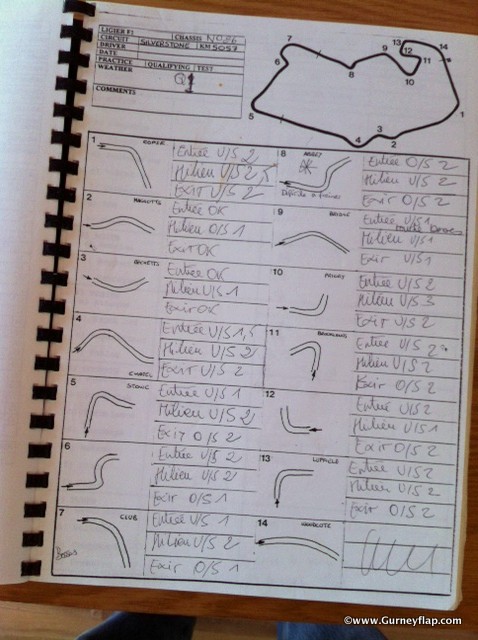 LIGIER F1
CHASSIS NO26
CIRCUIT SILVERSTONE KM 5057
DRIVER
DATE
PRACTICE QUALIFYING TEST
WEATHER Q1
COMMENTS
1 2 3 4 5 6 7 8 9 10 11 12 13 14
1 COPSE
Entrée U/S 2
Milieu U/S 2,5
Exit U/S 2
2 MAGGOTTS
Entrée OK
Milieu O/S 1
Exit OK
3 BECKETTS
Entrée OK
Milieu U/S 1
Exit OK
4 CHAPEL
Entrée U/S 1,5
Milieu U/S 2
Exit U/S 2
5 STOWE
Entrée U/S 1
Milieu U/S 2
Exit O/S 2
6
Entrée U/S 2
Milieu U/S 2
Exit O/S 1
7 CLUB
Entrée U/S 1
Milieu U/S 2
Exit O/S 1
8 ABBEY
Entrée O/S 2
Milieu U/S 2
Exit O/S 2
9 BRIDGE
Entrée U/S 1
Milieu U/S 1
Exit U/S 1
10 PRIORY
Entrée U/S 2
Milieu U/S 3
Exit U/S 2
11 BROOKLANDS
Entrée U/S 2
Milieu U/S 2
Exit O/S 2
12
Entrée U/S 2
Milieu U/S 1
Exit O/S 2
13 LUFFIELD
Entrée U/S 2
Milieu U/S 2
Exit O/S 2
14 WOODCOTE
©www.Gurneyflap.com